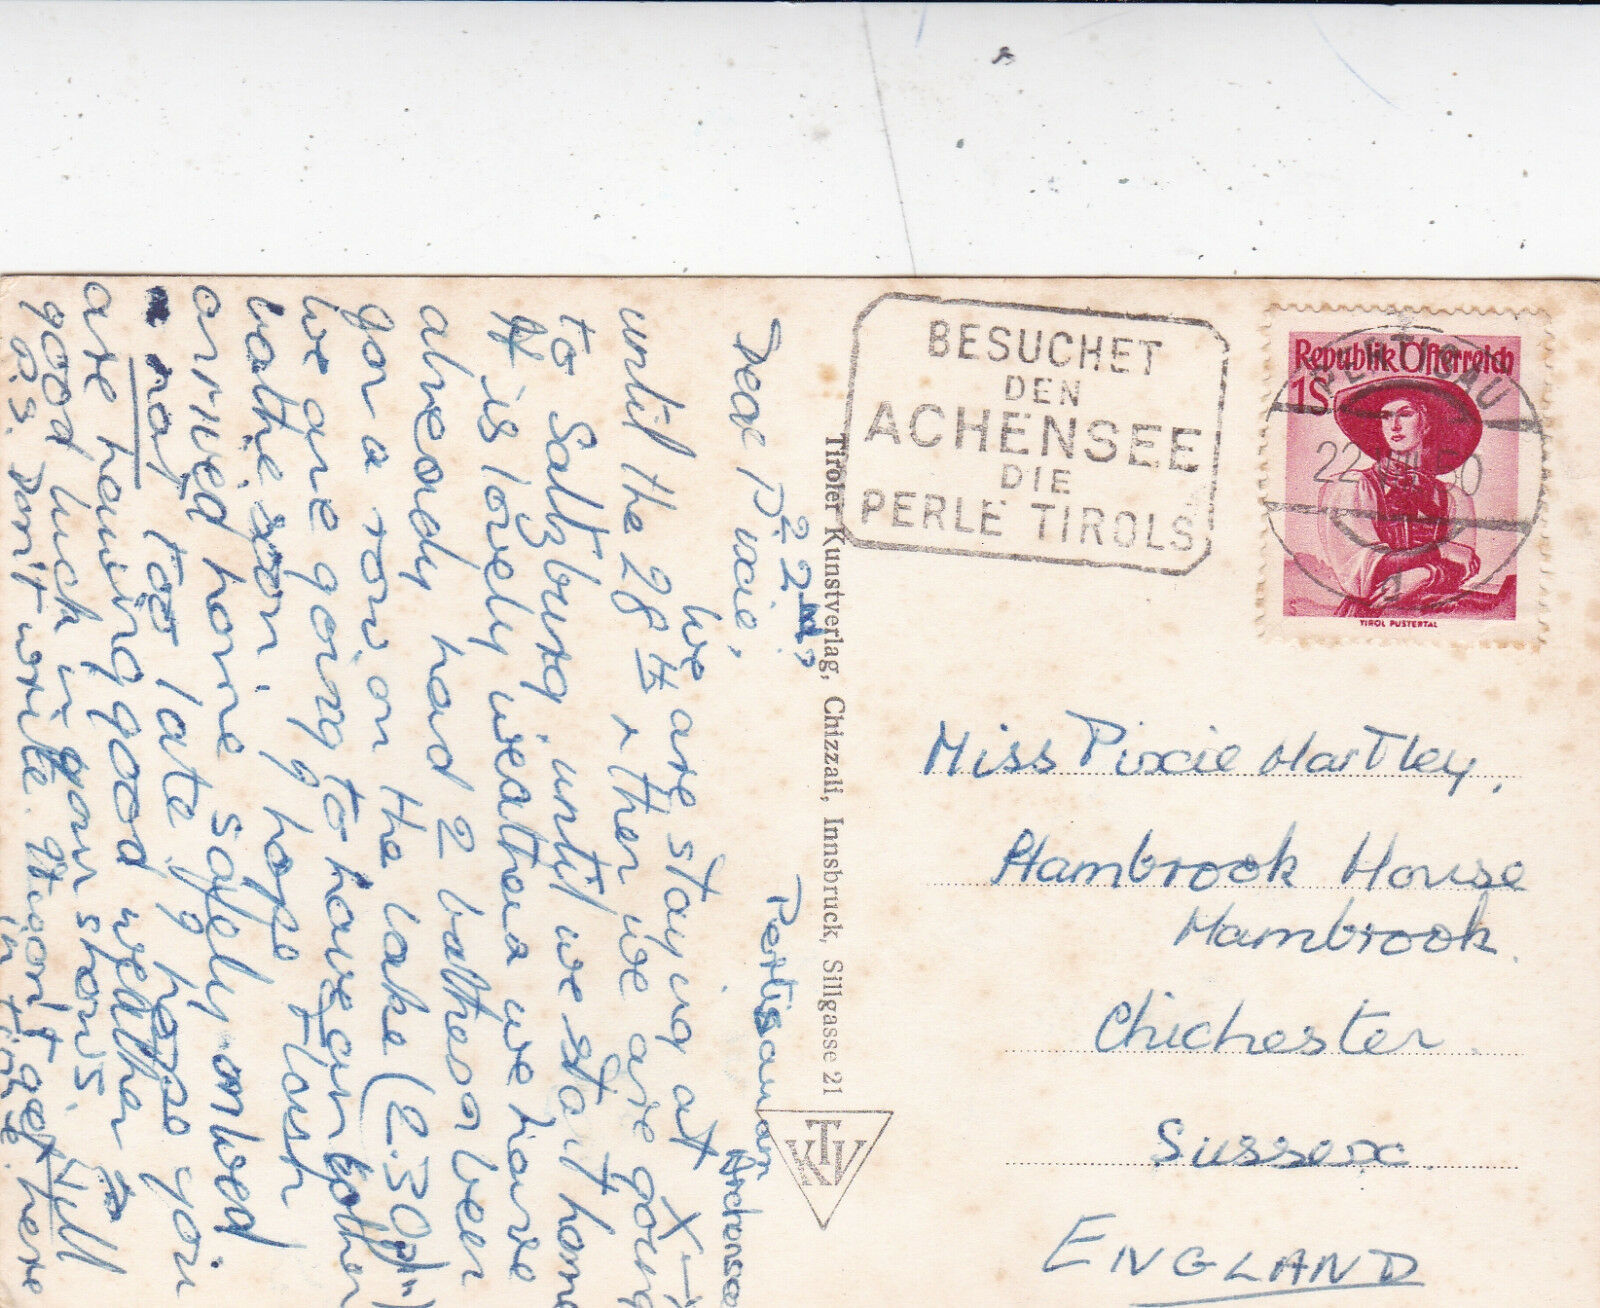 BESUCHET
DEN
ACHENSEE
DIE
PERLE TIROLS
Republik Österreich
1S
PERTISAU
22. VIII. 50
TIROL PUSTERTAL
Miss Pixie Hartley,
Hambrook House
Hambrook.
Chichester.
Sussex.
ENGLAND
Tiroler Kunstverlag, Chizzali, Innsbruck, Sillgasse 21
KTV
Pertisau am
Achensee
22nd,
Dear Pixie,
We are staying at X
until the 28th + then we are going
to Salzburg until we start home
It is lovely weather we have
already had 2 bathes + been
for a row on the lake (2.30pm)
we are going to have another
bathe soon. I hope Tush
arrived home safely and
not too late I hope you
are having good weather &
good luck in your shows.
P.S. Don't write. It won't get here
in time.